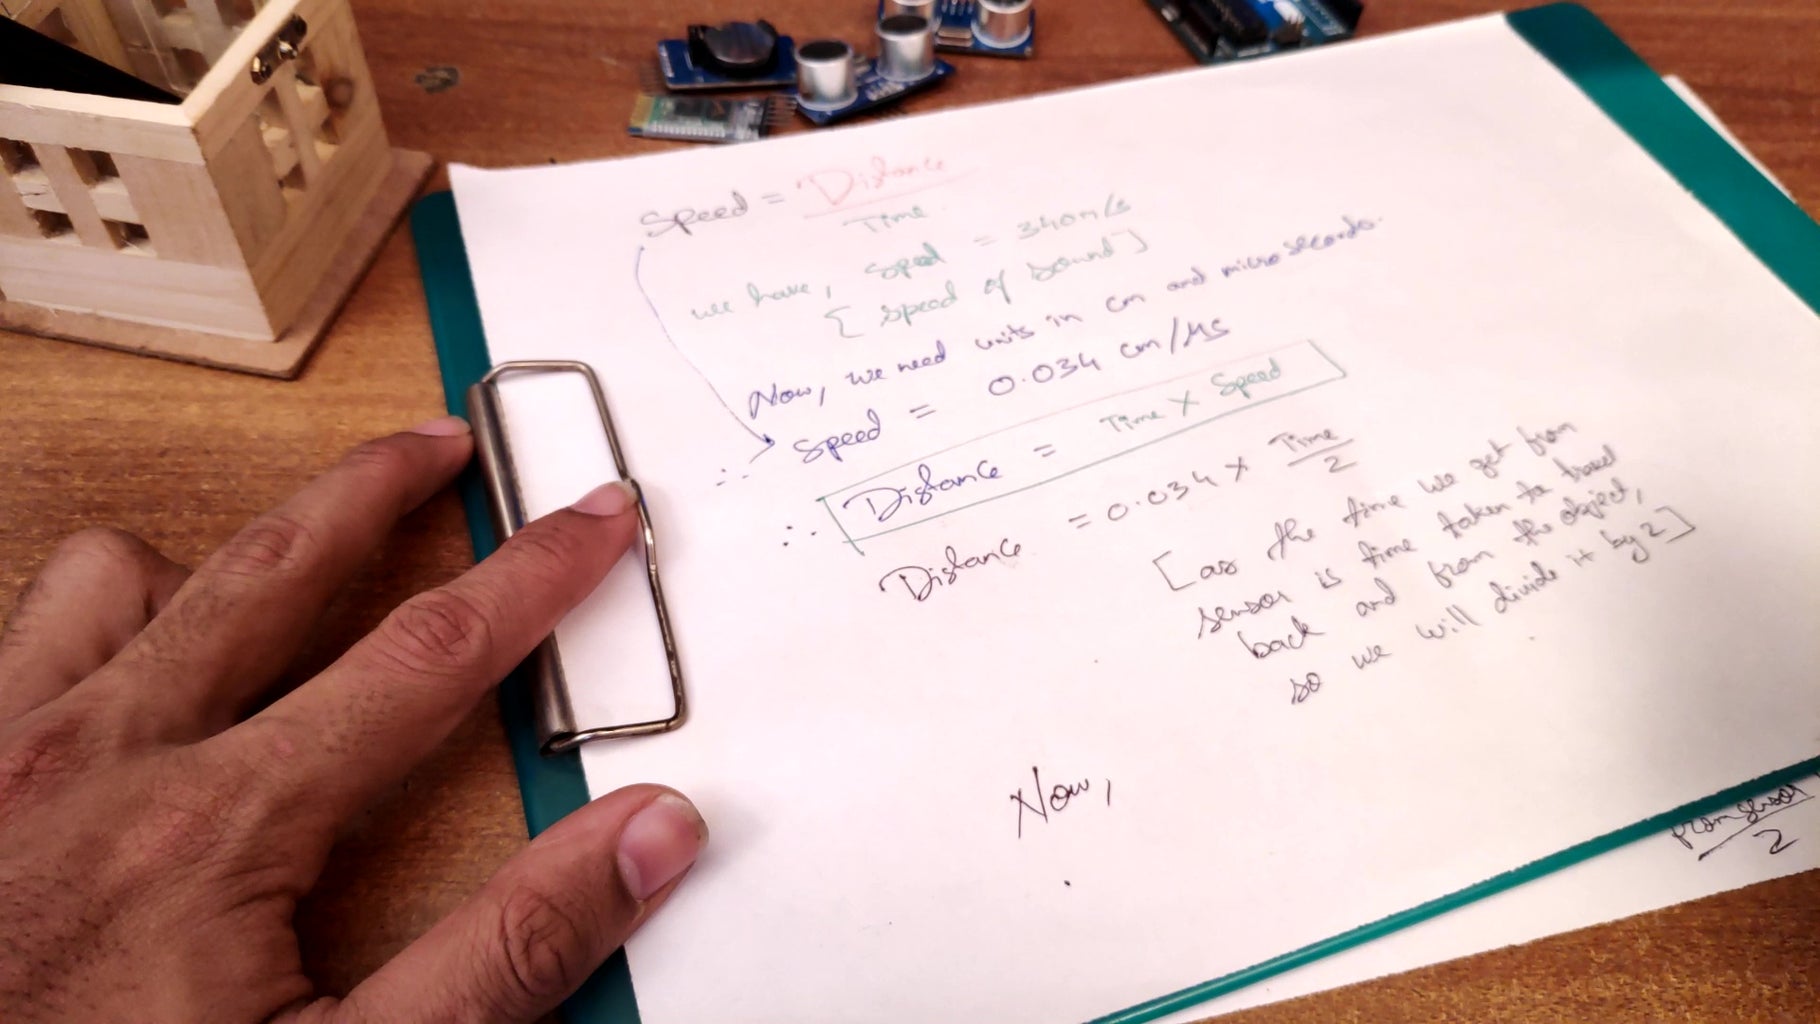 Speed = Distance
Time
we have, speed = 340m/s
[speed of sound]
Now, we need units in cm and microseconds.
∴ Speed = 0.034 cm/μs
∴ Distance = Time X Speed
Distance = 0.034 X Time
2
[as the time we get from
sensor is time taken to travel
back and from the object,
so we will divide it by 2]
Now,
from sensor
2